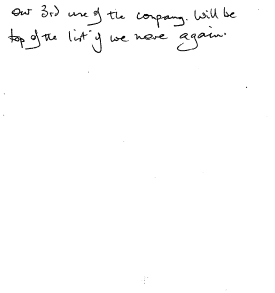 Our 3rd use of the company. Will be
top of the list if we move again.